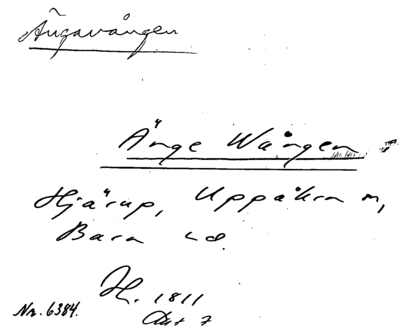 Ängavången
Änge Wången
Hjärup, Uppåkra sn,
Bara hd.
H. 1811
Akt 7
Nr. 6384.